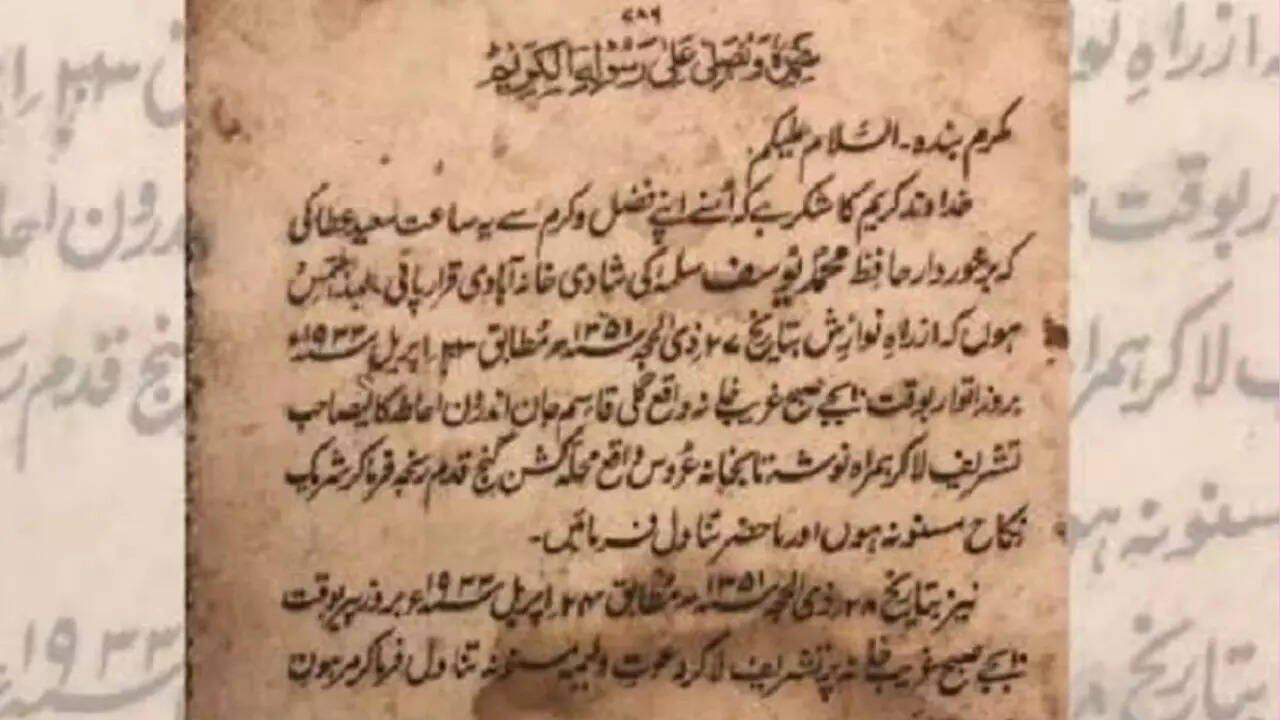 ۷۸۶
نحمدہٗ وَنُصَلّی عَلیٰ رَسُولِہِ الْکَرِیْم
مکرم بندہ۔ السّلام علیکم
خداوند کریم کا شکر ہے کہ اُسنے اپنے فضل وکرم سے یہ ساعت سعید عطا کی
کہ برخوردار حافظ محمّد یُوسف سلمہٗ کی شادی خانہ آبادی قرار پائی
ہوں کہ ازراہِ نوازش بتاریخ ۲۷؍ذی الحجہ سنہ ۱۳۵۱ھ مُطابق ۲۳؍اپریل سنہ ۱۹۳۳ء
بروز اتوار بوقت ۱۰ بجے صبح غریب خانہ واقع گلی قاسم جان اندرُون احاطہ کالیصاحب
تشریف لاکر ہمراہ نوشہ تا بخانہ عُروس واقع محلہ کشن گنج قدم رنجہ فرماکر شریک
نکاح مسنونہ ہوں اور ماحضر تناول فرمائیں۔
نیز بتاریخ ۲۸؍ذی الحجہ سنہ ۱۳۵۱ھ مُطابق ۲۴؍اپریل سنہ ۱۹۳۳ء بروز پیر بوقت
۱۰ بجے صبح غریب خانہ پر تشریف لاکر دعوتِ ولیمہ مسنونہ تناول فرماکر مرہون